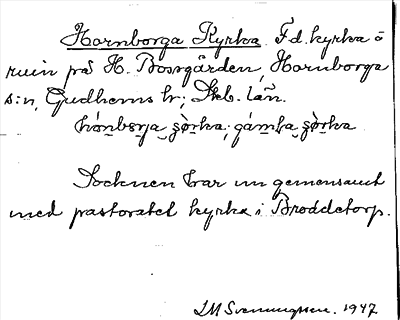 Hornborga Kyrka F.d. kyrka o
ruin på H. Bossgården, Hornborga
s:n, Gudhems hr; Skb. län.
hónbərja ɕòrka; gámba ɕòrka
Socknen har nu gemensamt
med pastoratet kyrka i Broddetorp.
I M Svenungsson. 1947